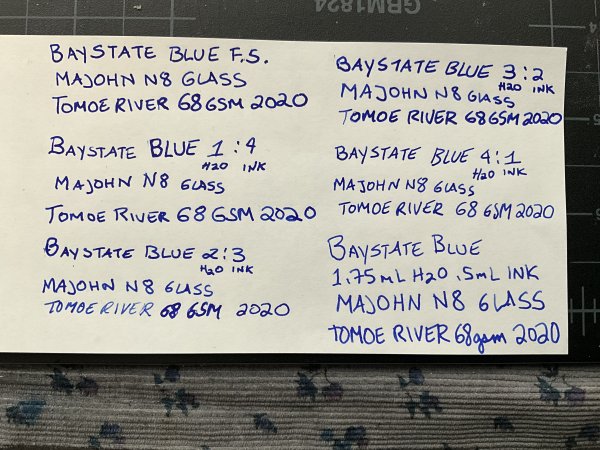 GBM1824
BAYSTATE BLUE F.S.
MAJOHN N8 GLASS
TOMOE RIVER 68 GSM 2020
BAYSTATE BLUE 1:4
H2O INK
MAJOHN N8 GLASS
TOMOE RIVER 68 GSM 2020
BAYSTATE BLUE 2:3
H2O INK
MAJOHN N8 GLASS
TOMOE RIVER 68 GSM 2020
BAYSTATE BLUE 3:2
H2O INK
MAJOHN N8 GLASS
TOMOE RIVER 68 GSM 2020
BAYSTATE BLUE 4:1
H2O INK
MAJOHN N8 GLASS
TOMOE RIVER 68 GSM 2020
BAYSTATE BLUE
1.75mL H2O .5mL INK
MAJOHN N8 GLASS
TOMOE RIVER 68gsm 2020